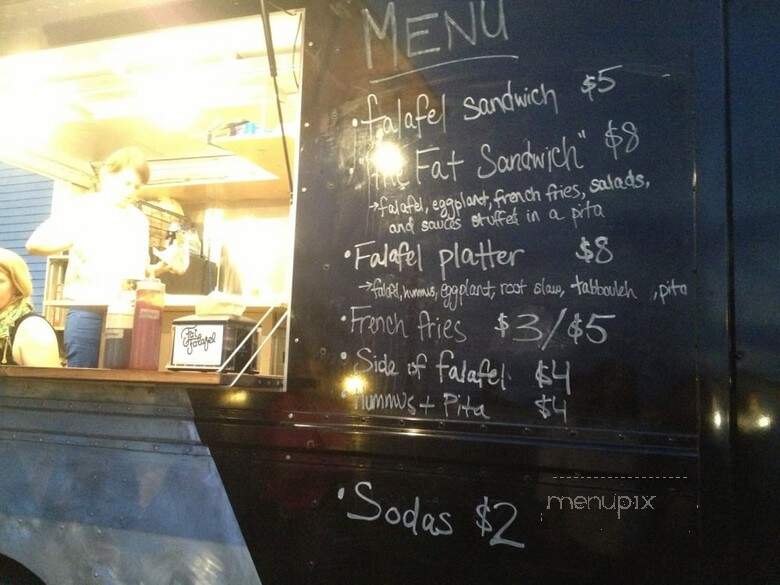 MENU
• falafel sandwich $5
• "The Fat Sandwich" $8
→ falafel, eggplant, french fries, salads,
and sauces stuffed in a pita
• Falafel platter $8
→ falafel, hummus, eggplant, root slaw, tabbouleh, pita
• French fries $3/$5
• Side of falafel $4
• Hummus + Pita $4
• Sodas $2
Fat
Falafel
menupix